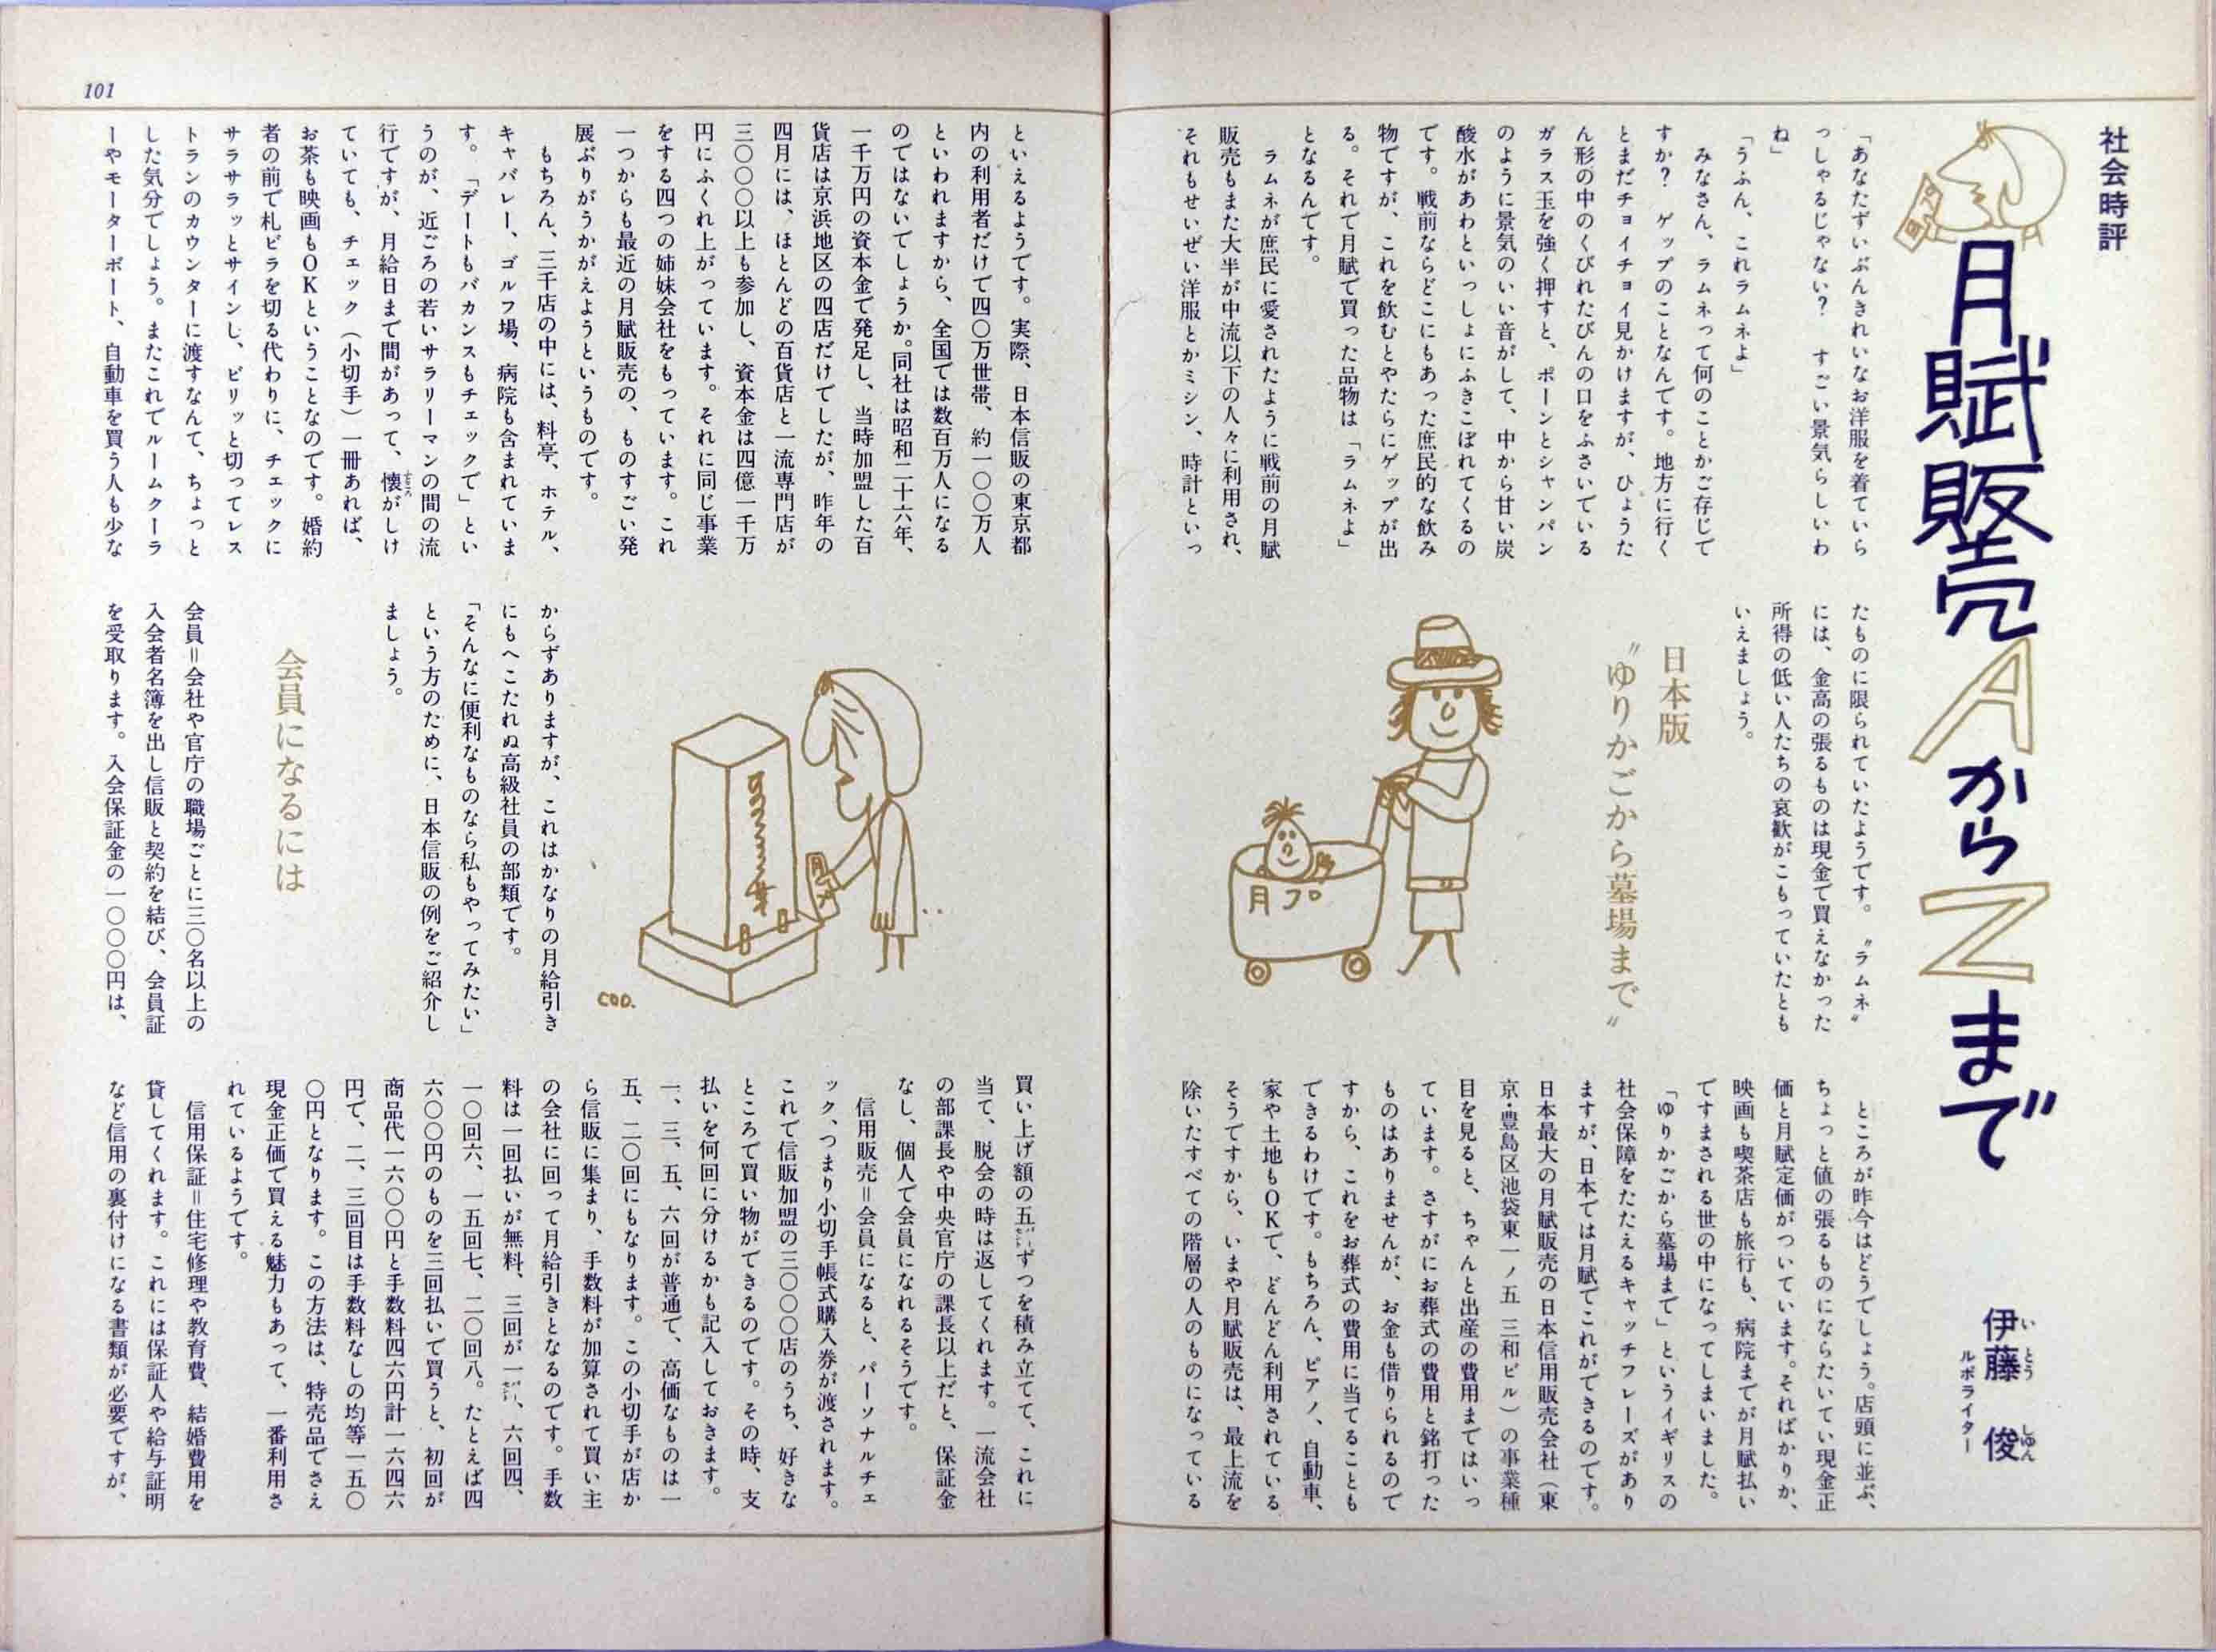 社会時評
月賦販売AからZまで
伊藤 俊
いとう しゅん
ルポライター
「あなたずいぶんきれいなお洋服を着ていら
っしゃるじゃない? すごい景気らしいわ
ね」
「うふん、これラムネよ」
みなさん、ラムネって何のことかご存じで
すか? ゲップのことなんです。地方に行く
とまだチョイチョイ見かけますが、ひょうた
ん形の中のくびれたびんの口をふさいでいる
ガラス玉を強く押すと、ポーンとシャンパン
のように景気のいい音がして、中から甘い炭
酸水があわといっしょにふきこぼれてくるの
です。戦前ならどこにもあった庶民的な飲み
物ですが、これを飲むとやたらにゲップが出
る。それで月賦で買った品物は「ラムネよ」
となるんです。
ラムネが庶民に愛されたように戦前の月賦
販売もまた大半が中流以下の人々に利用され、
それもせいぜい洋服とかミシン、時計といっ
たものに限られていたようです。〝ラムネ〟
には、金高の張るものは現金で買えなかった
所得の低い人たちの哀歓がこもっていたとも
いえましょう。
日本版
〝ゆりかごから墓場まで〟
月プ
ところが昨今はどうでしょう。店頭に並ぶ、
ちょっと値の張るものにならたいてい現金正
価と月賦定価がついています。そればかりか、
映画も喫茶店も旅行も、病院までが月賦払い
ですまされる世の中になってしまいました。
「ゆりかごから墓場まで」というイギリスの
社会保障をたたえるキャッチフレーズがあり
ますが、日本では月賦でこれができるのです。
日本最大の月賦販売の日本信用販売会社(東
京・豊島区池袋東一ノ五 三和ビル)の事業種
目を見ると、ちゃんと出産の費用まではいっ
ています。さすがにお葬式の費用と銘打った
ものはありませんが、お金も借りられるので
すから、これをお葬式の費用に当てることも
できるわけです。もちろん、ピアノ、自動車、
家や土地もOKで、どんどん利用されている
そうですから、いまや月賦販売は、最上流を
除いたすべての階層の人のものになっている
といえるようです。実際、日本信販の東京都
内の利用者だけで四〇万世帯、約一〇〇万人
といわれますから、全国では数百万人になる
のではないでしょうか。同社は昭和二十六年、
一千万円の資本金で発足し、当時加盟した百
貨店は京浜地区の四店だけでしたが、昨年の
四月には、ほとんどの百貨店と一流専門店が
三〇〇〇以上も参加し、資本金は四億一千万
円にふくれ上がっています。それに同じ事業
をする四つの姉妹会社をもっています。これ
一つからも最近の月賦販売の、ものすごい発
展ぶりがうかがえようというものです。
もちろん、三千店の中には、料亭、ホテル、
キャバレー、ゴルフ場、病院も含まれていま
す。「デートもバカンスもチェックで」とい
うのが、近ごろの若いサラリーマンの間の流
行ですが、月給日まで間があって、懐がしけ
ていても、チェック(小切手)一冊あれば、
お茶も映画もOKということなのです。婚約
者の前で札ビラを切る代わりに、チェックに
サラサラッとサインし、ビリッと切ってレス
トランのカウンターに渡すなんて、ちょっと
した気分でしょう。またこれでルームクーラ
ーやモーターボート、自動車を買う人も少な
からずありますが、これはかなりの月給引き
にもへこたれぬ高級社員の部類です。
「そんなに便利なものなら私もやってみたい」
という方のために、日本信販の例をご紹介し
ましょう。
COD.
会員になるには
会員=会社や官庁の職場ごとに三〇名以上の
入会者名簿を出し信販と契約を結び、会員証
を受取ります。入会保証金の一〇〇〇円は、
買い上げ額の五㌫ずつを積み立てて、これに
当て、脱会の時は返してくれます。一流会社
の部課長や中央官庁の課長以上だと、保証金
なし、個人で会員になれるそうです。
信用販売=会員になると、パーソナルチェ
ック、つまり小切手帳式購入券が渡されます。
これで信販加盟の三〇〇〇店のうち、好きな
ところで買い物ができるのです。その時、支
払いを何回に分けるかも記入しておきます。
一、三、五、六回が普通で、高価なものは一
五、二〇回にもなります。この小切手が店か
ら信販に集まり、手数料が加算されて買い主
の会社に回って月給引きとなるのです。手数
料は一回払いが無料、三回が一㌫、六回四、
一〇回六、一五回七、二〇回八。たとえば四
六〇〇円のものを三回払いで買うと、初回が
商品代一六〇〇円と手数料四六円計一六四六
円で、二、三回目は手数料なしの均等一五〇
〇円となります。この方法は、特売品でさえ
現金正価で買える魅力もあって、一番利用さ
れているようです。
信用保証=住宅修理や教育費、結婚費用を
貸してくれます。これには保証人や給与証明
など信用の裏付けになる書類が必要ですが、
101